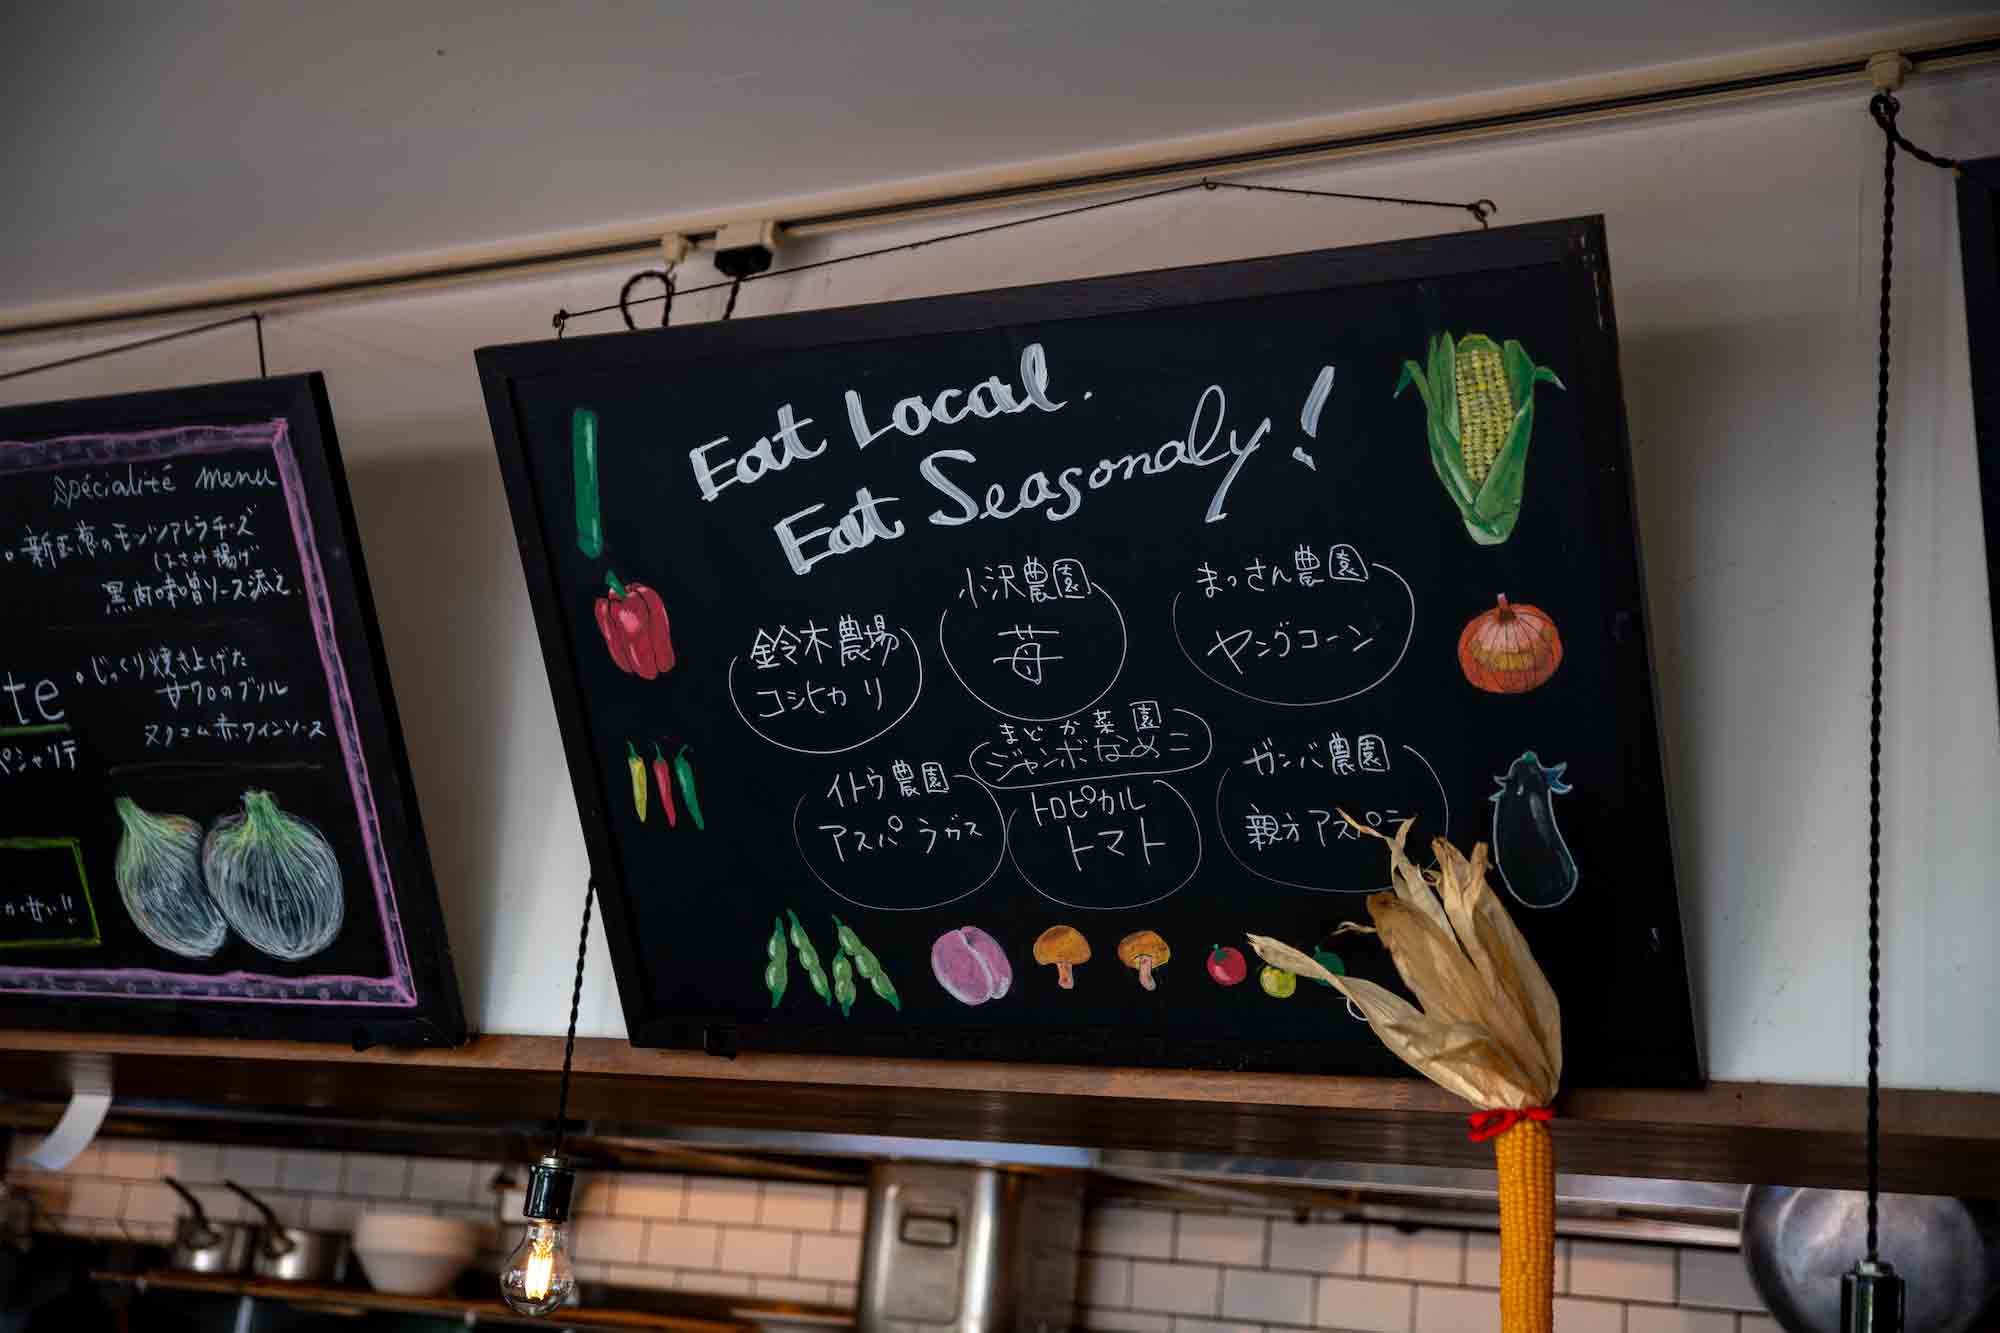 Spécialité menu
・新玉葱のモッツァレラチーズ
はさみ揚げ
黒肉味噌ソース添え.
・じっくり焼き上げた
サワロのブリル
ヌクマム赤ワインソース
te
ペシャリテ
が甘い!!
Eat Local.
Eat Seasonaly!
鈴木農場
コシヒカリ
小沢農園
苺
まっさん農園
ヤングコーン
まどか菜園
ジャンボなめこ
イトウ農園
アスパラガス
トロピカル
トマト
ガンバ農園
親方アスパラ